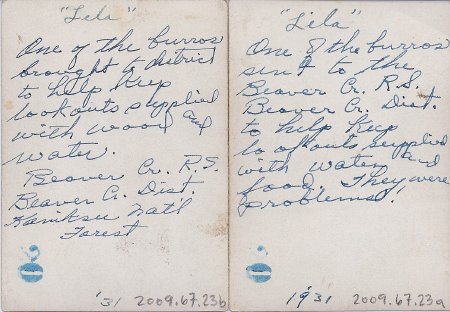 "Lela"
One of the burros
brought to district
to help keep
lookouts supplied
with wood and
water.
Beaver Cr. R.S.
Beaver Cr. Dist
Kaniksu Nat'l
Forest
'31 2009.67.23b
"Lila"
One of the burros
sent to the
Beaver Cr. R.S.
Beaver Cr. Dist.
to help keep
lookouts supplied
with water and
food. They were
problems!
1931 2009.67.23a